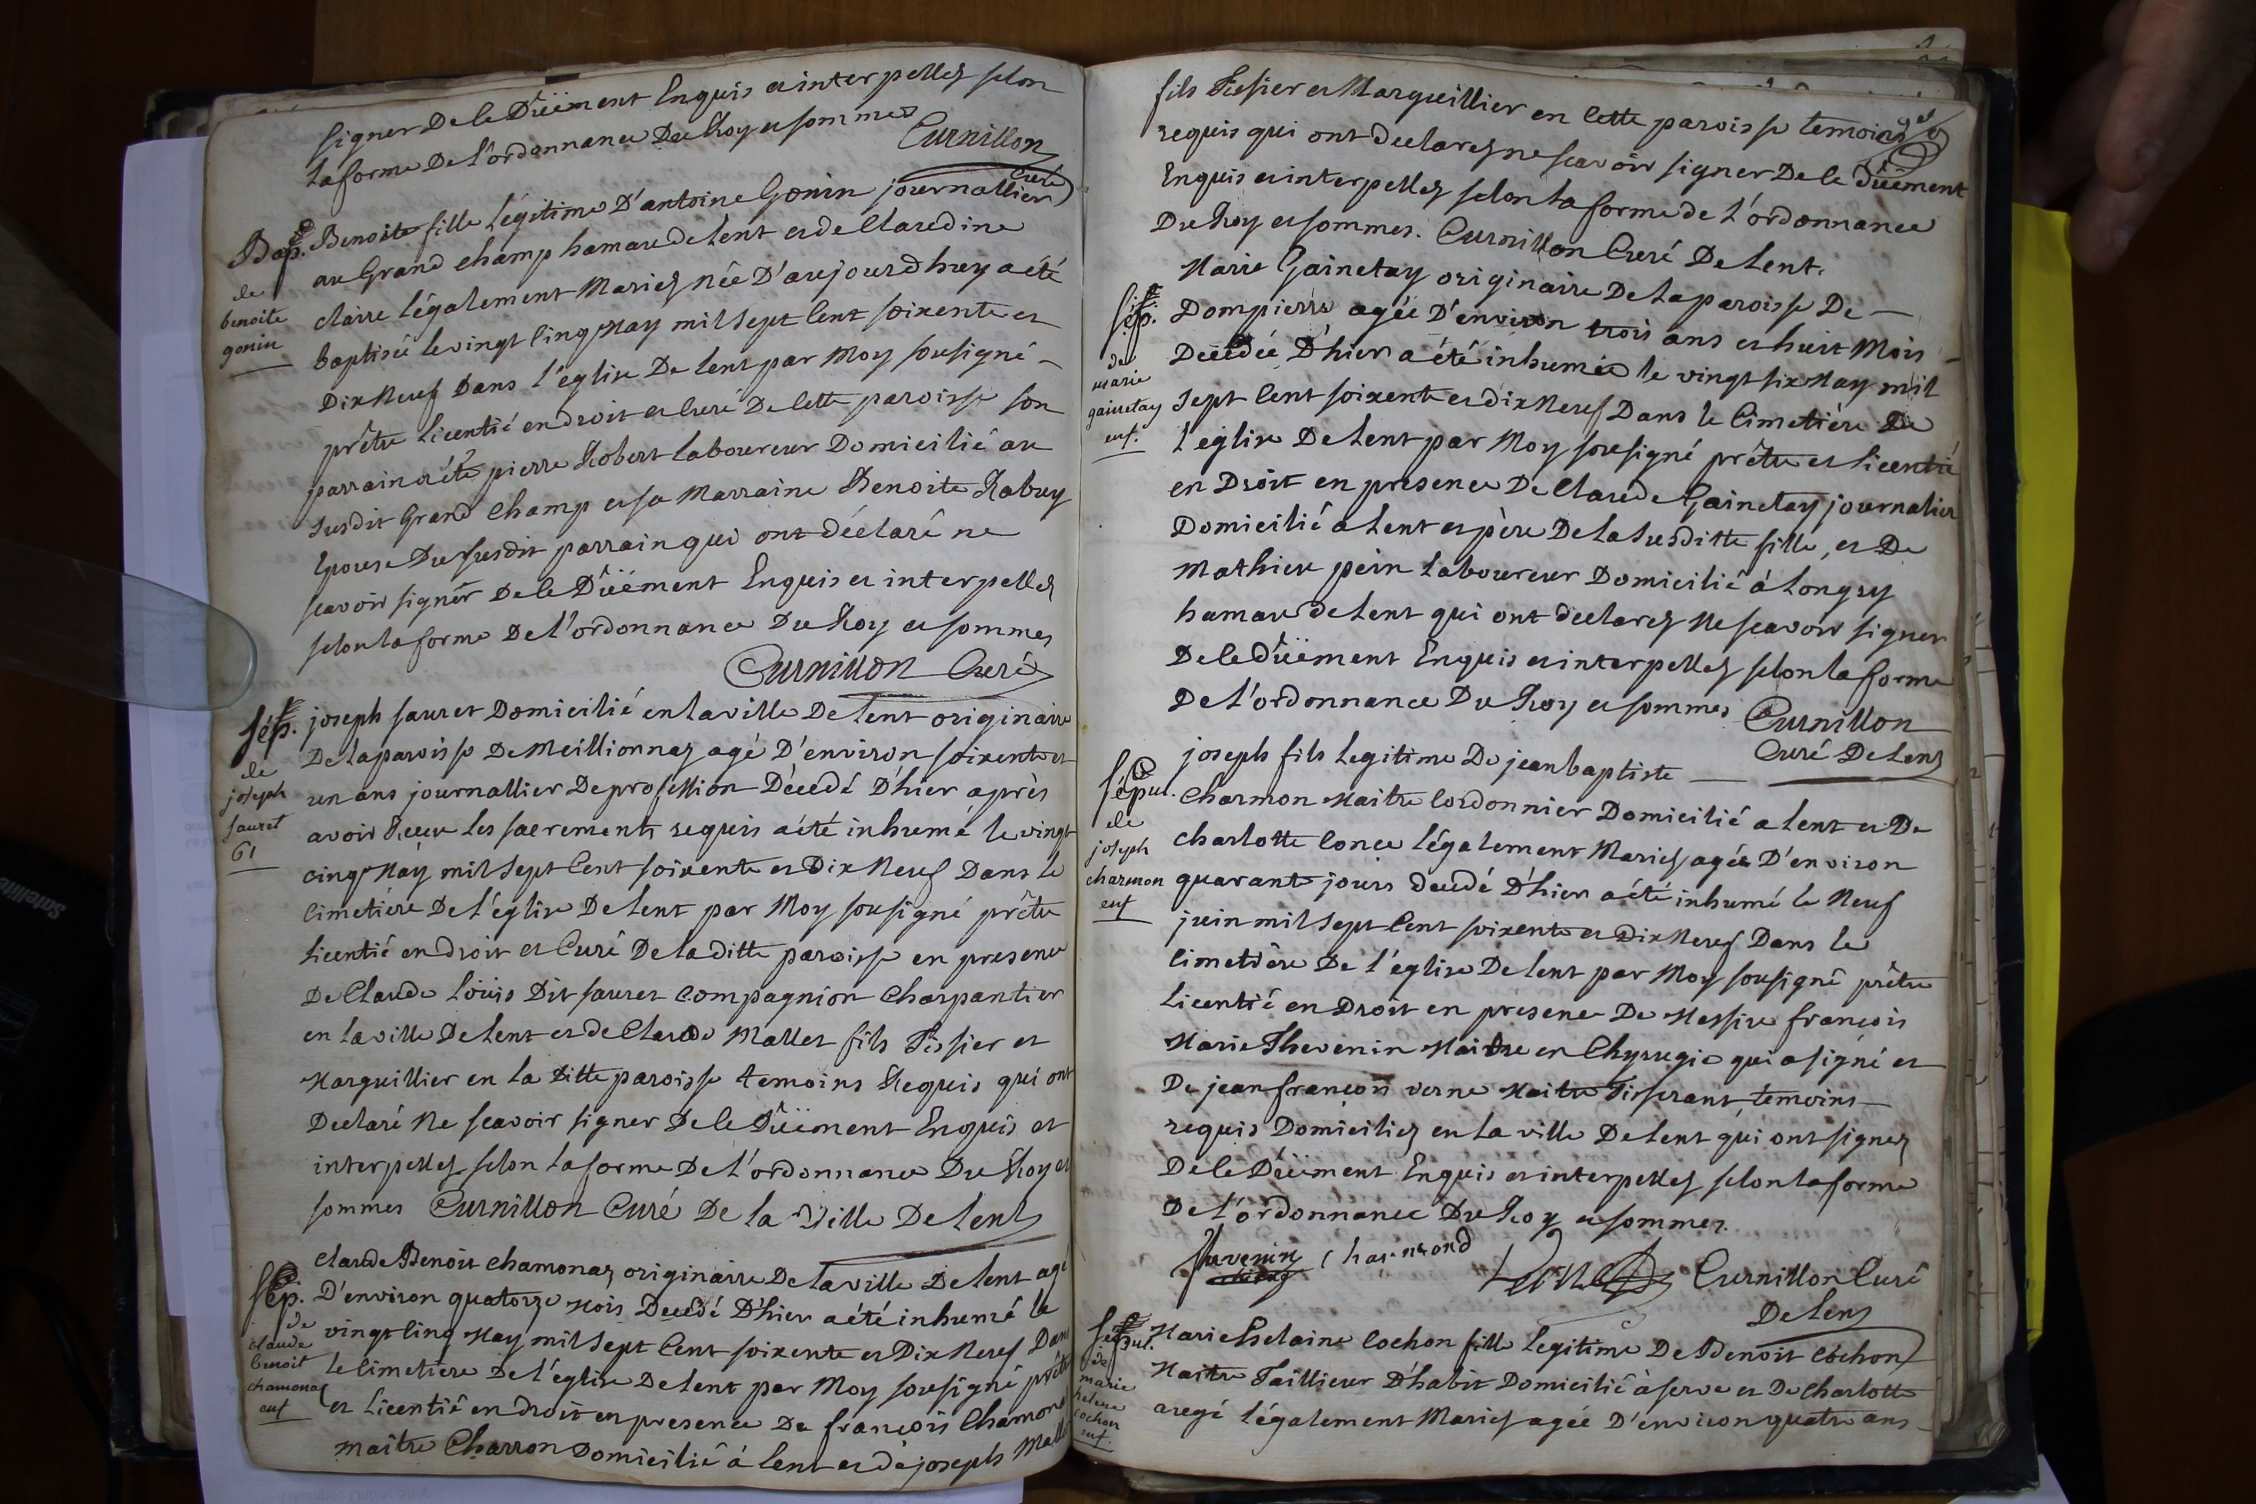 signer De le Dûëment Enquis et interpellez selon
la forme De l'ordonnance Du Roy et sommes Curnillon
Curé
Bap.
de
benoite
gonin
Benoite fille légitime D'antoine Gonin journallier
au Grand champ hamau de Lent et de Claudine
claire légalement Mariez Née D'aujourdhuy a été
baptisée le vingt Cinq May mil Sept Cent soixente et
Dix Neuf Dans l'église De Lent par Moy sousigné
prêtre Licentié en droit et Curé De Cette paroisse son
parrain a été pierre Robert laboureur Domicilié au
susdit Grand Champ et sa Marraine Benoite Rabuy
Epouse Du susdit parrain qui ont déclaré ne
scavoir signer De le Dûëment Enquis et interpellez
selon la forme De l'ordonnance Du Roy et sommes
Curnillon Curé
sép.
de
joseph
sauret
61
joseph sauret Domicilié en la ville De Lent originaire
De la paroisse De Meillionnaz agé D'environ soixente et
un ans journallier De profession Décedé D'hier après
avoir Reçeu les sacrements requis a été inhumé le vingt
cinq May mil Sept Cent soixente et Dix Neuf Dans le
Cimetière De l'église De Lent par Moy sousigné prêtre
Licentié en droit et Curé De la ditte paroisse en presence
De Claude Loüis Dit sauret Compagnion Charpantier
en la ville De Lent et de Claude Mallet fils Tissier et
Marguillier en la Ditte paroisse temoins Requis qui ont
Declaré Ne scavoir signer De le Dûëment Enquis et
interpellez selon la forme De L'ordonnance Du Roy et
sommes Curnillon Curé De la Ville De Lent
sép.
de
claude
benoit
chamonaz
enf
Claude Benoit chamonaz originaire De la ville De Lent agé
D'environ quatorze Mois Decedé D'hier a été inhumé le
vingt Cinq May mil Sept Cent soixente et Dix Neuf Dans
le Cimetière De l'église De Lent par Moy sousigné prêtre
et Licentié en droit en presence De françois Chamona
maitre Charron Domicilié à Lent et de joseph Mall
fils Tissier et Marguillier en Cette paroisse temoins
requis qui ont declarez ne scavoir signer De le dûëment
Enquis et interpellez selon la forme de l'ordonnance
Du Roy et sommes. Curnillon Curé De Lent.
sép.
de
marie
gainetay
enf.
Marie Gainetay originaire De la paroisse De
Dompierre agée D'environ trois ans et huit Mois
Décédée D'hier a été inhumée le vingt six May mil
Sept Cent soixente et dix Neuf Dans le Cimetière De
l'église De Lent par Moy sousigné prêtre et Licentié
en Droit en presence De Claude Gainetay journalier
Domicilié a Lent et père De la susditte fille, et De
Mathieu pein Laboureur Domicilié à Longry
hamau de Lent qui ont declarez Ne scavoir signer
De le dûëment Enquis et interpellez selon la forme
De L'ordonnance Du Roy et sommes Curnillon
Curé De Lent
sépul.
de
joseph
charmon
enf
joseph fils Legitime De jean baptiste
Charmon Maitre Cordonnier Domicilié a Lent et De
charlotte Conce légalement Mariez agée D'environ
quarante jours decedé D'hier a été inhumé le Neuf
juin mil Sept Cent soixente et Dix Neuf Dans le
Cimetière De l'église De Lent par Moy sousigné prêtre
Licentié en Droit en présence De Messire françois
Marie Thevenin Maitre en Chyrugie qui a signé et
De jean françois verne Maitre Tisserant, témoins
requis Domiciliez en la ville De Lent qui ont signez
De le Dûëment Enquis et interpellez selon la forme
De l'ordonnance Du Roy et sommes.
Thevenin Charmond Curnillon Curé
De Lent
sépul.
de
marie
helene
cochon
enf.
Marie Helaine Cochon fille Legitime De Benoit Cochon
Maitre Taillieur D'habit Domicilié à serve et De Charlotte
aregé légalement Mariez agée D'environ quatre ans